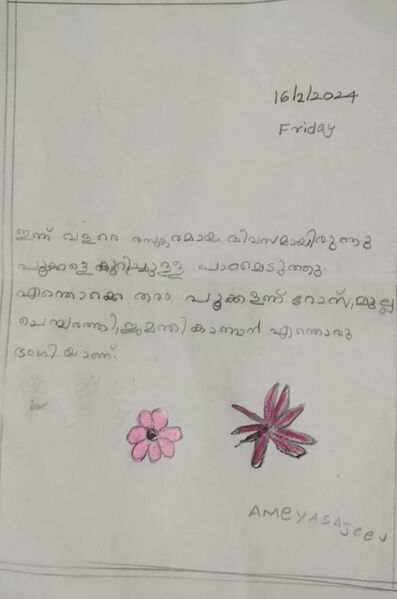 16/2/2024
Friday
ഇന്ന് വളരെ രസകരമായ ദിവസമായിരുന്നു
പൂക്കളെ കുറിച്ചുള്ള പാഠമെടുത്തു.
എന്തൊക്കെ തരം പൂക്കളാണ് റോസ്, മുല്ല
ചെമ്പരത്തി, ജമന്തി കാണാൻ എന്തൊരു
ഭംഗിയാണ്.
AMEYASAJeev